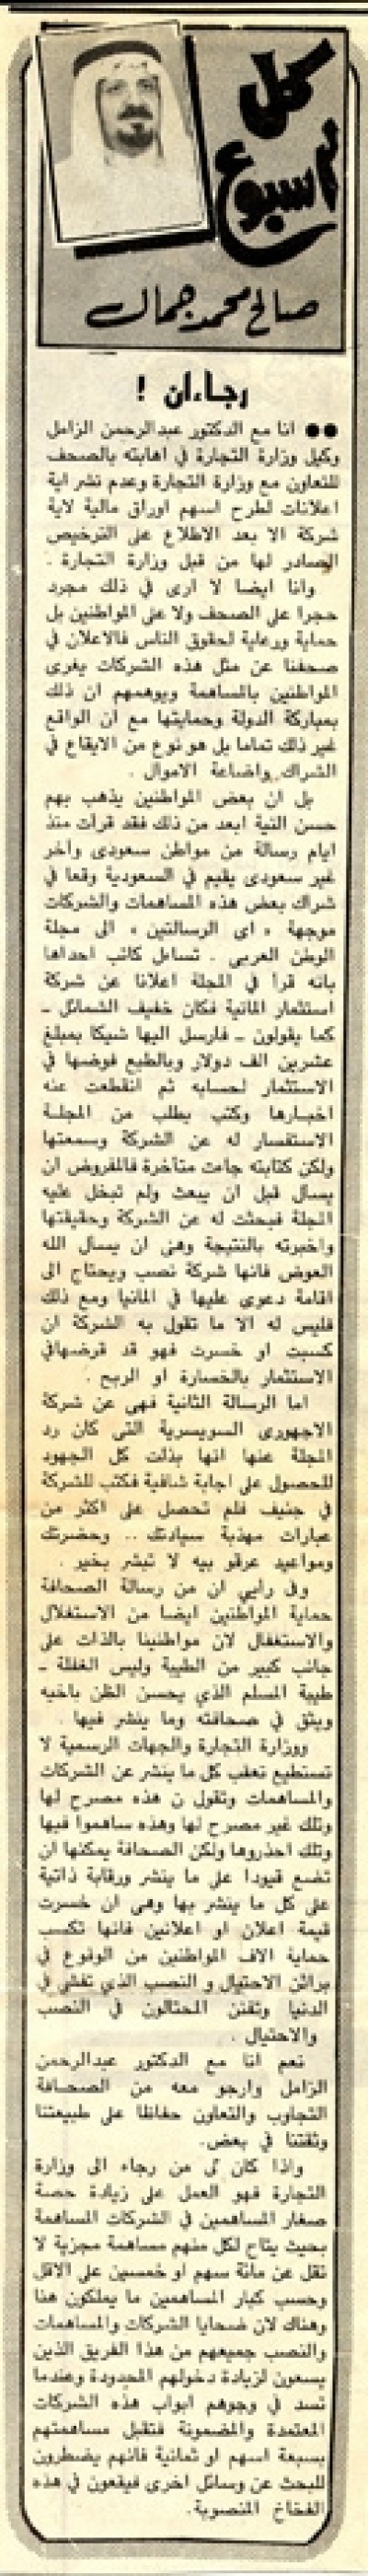 كل
أسبوع
صالح محمد جمال
رجاءان !
●● انا مع الدكتور عبدالرحمن الزامل
وكيل وزارة التجارة في اهابته بالصحف
للتعاون مع وزارة التجارة وعدم نشر اية
اعلانات لطرح اسهم اوراق مالية لاية
شركة الا بعد الاطلاع على الترخيص
الصادر لها من قبل وزارة التجارة .
وانا ايضا لا ارى في ذلك مجرد
حجرا على الصحف ولا على المواطنين بل
حماية ورعاية لحقوق الناس فالاعلان في
صحفنا عن مثل هذه الشركات يغرى
المواطنين بالمساهمة ويوهمهم ان ذلك
بمباركة الدولة وحمايتها مع ان الواقع
غير ذلك تماما بل هو نوع من الايقاع في
الشراك واضاعة الاموال .
بل ان بعض المواطنين يذهب بهم
حسن النية ابعد من ذلك فقد قرأت منذ
ايام رسالة من مواطن سعودى وآخر
غير سعودى يقيم في السعودية وقعا في
شراك بعض هذه المساهمات والشركات
موجهة « اى الرسالتين » الى مجلة
الوطن العربى . تساءل كاتب احداها
بانه قرأ في المجلة اعلانا عن شركة
استثمار المانية فكان خفيف الشمائل ـ
كما يقولون ـ فارسل اليها شيكا بمبلغ
عشرين الف دولار وبالطبع فوضها في
الاستثمار لحسابه ثم انقطعت عنه
اخبارها وكتب يطلب من المجلة
الاستفسار له عن الشركة وسمعتها
ولكن كتابته جاءت متأخرة فالمفروض ان
يسأل قبل ان يبعث ولم تبخل عليه
المجلة فبحثت له عن الشركة وحقيقتها
واخبرته بالنتيجة وهى ان يسأل الله
العوض فانها شركة نصب ويحتاج الى
اقامة دعوى عليها في المانيا ومع ذلك
فليس له الا ما تقول به الشركة ان
كسبت او خسرت فهو قد فرضهافي
الاستثمار بالخسارة او الربح .
اما الرسالة الثانية فهى عن شركة
الاجهورى السويسرية التى كان رد
المجلة عنها انها بذلت كل الجهود
للحصول على اجابة شافية فكتب للشركة
في جنيف فلم تحصل على اكثر من
عبارات مهذبة سيادتك .. وحضرتك
ومواعيد عرقو بيه لا تبشر بخير .
وفى رأيي ان من رسالة الصحافة
حماية المواطنين ايضا من الاستغلال
والاستغفال لان مواطنينا بالذات على
جانب كبير من الطيبة وليس الغفلة ـ
طيبة المسلم الذي يحسن الظن بأخيه
ويثق في صحافته وما ينشر فيها .
ووزارة التجارة والجهات الرسمية لا
تستطيع تعقب كل ما ينشر عن الشركات
والمساهمات وتقول ن هذه مصرح لها
وتلك غير مصرح لها وهذه ساهموا فيها
وتلك احذروها ولكن الصحافة يمكنها ان
تضع قيودا على ما ينشر ورقابة ذاتية
على كل ما ينشر بها وهى ان خسرت
قيمة اعلان او اعلانين فانها تكسب
حماية الاف المواطنين من الوقوع في
براثن الاحتيال و النصب الذي تفشى في
الدنيا وتفنن المحتالون في النصب
والاحتيال .
نعم انا مع الدكتور عبدالرحمن
الزامل وارجو معه من الصحافة
التجاوب والتعاون حفاظا على طبيعتنا
وثقتنا في بعض.
واذا كان لى من رجاء الى وزارة
التجارة فهو العمل على زيادة حصة
صغار المساهمين في الشركات المساهمة
بحيث يتاح لكل منهم مساهمة مجزية لا
تقل عن مائة سهم او خمسين على الاقل
وحسب كبار المساهمين ما يملكون هنا
وهناك لان ضحايا الشركات والمساهمات
والنصب جميعهم من هذا الفريق الذين
يسعون لزيادة دخولهم المحدودة وعندما
تسد في وجوهم ابواب هذه الشركات
المعتمدة والمضمونة فتقبل مساهمتهم
بسبعة اسهم او ثمانية فانهم يضطرون
للبحث عن وسائل اخرى فيقعون في هذه
الفخاخ المنصوبة.